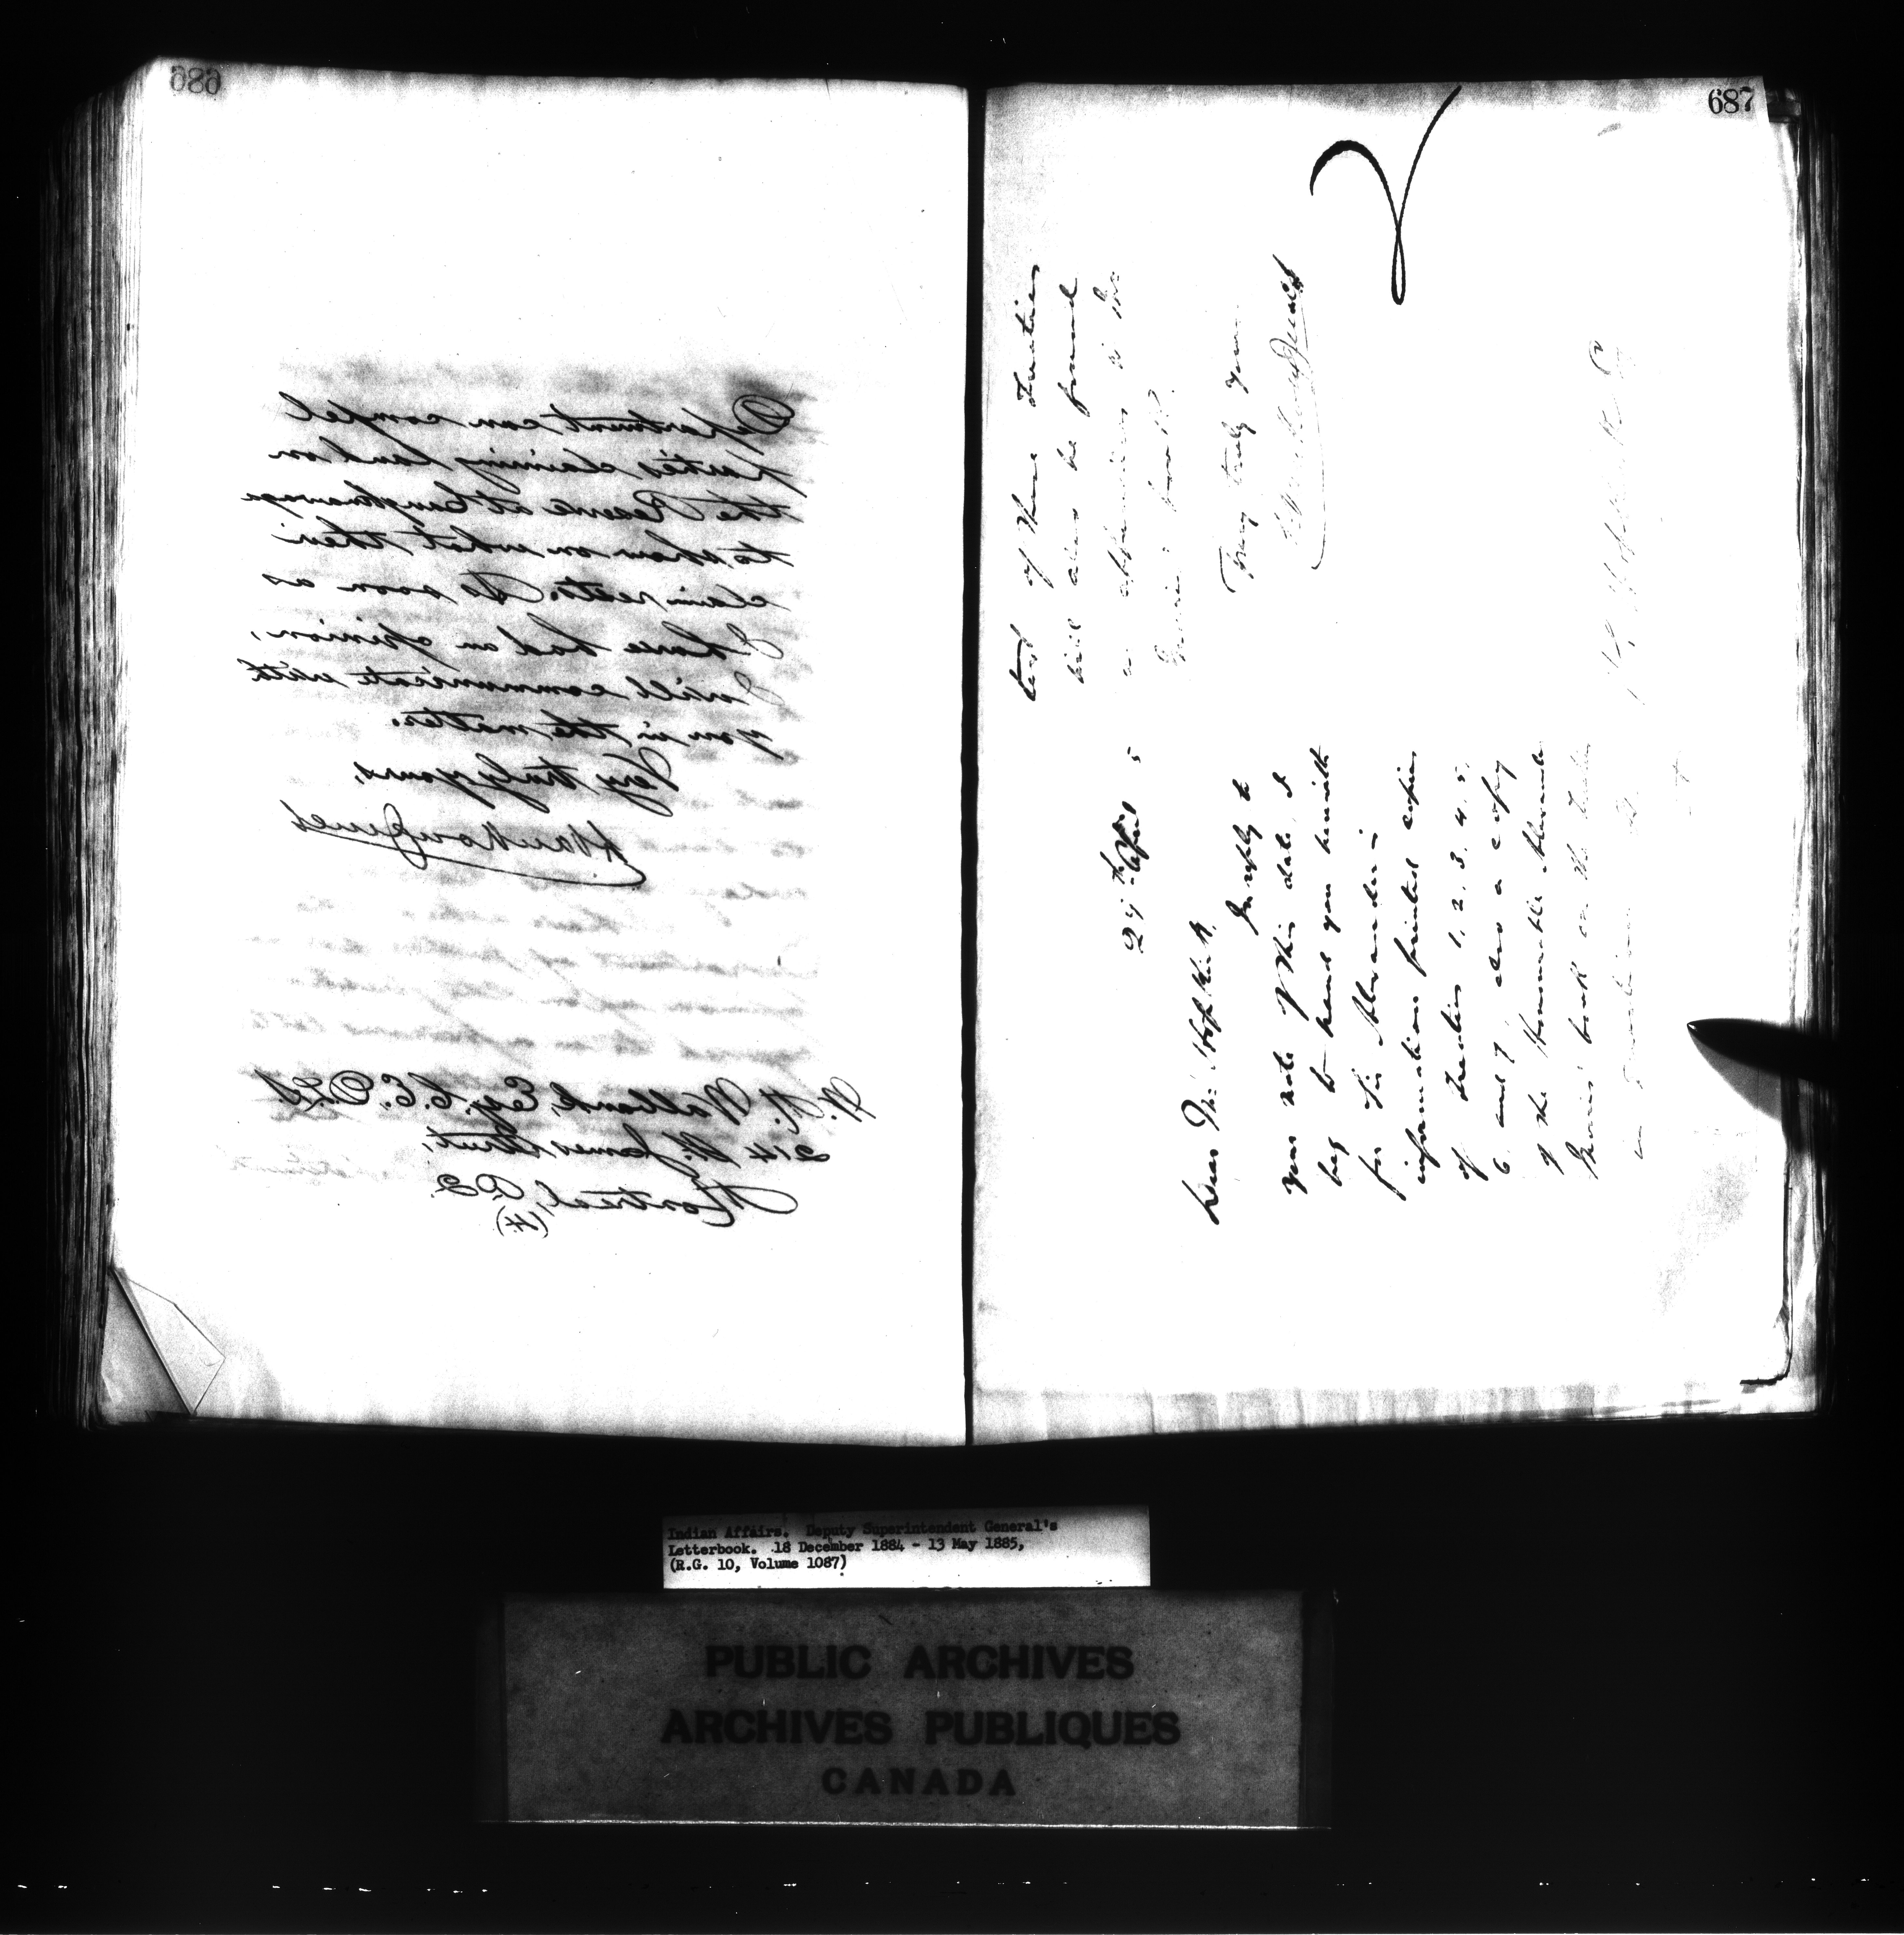 686
Department can compel
parties claiming land on
the Reserve at Caughnawaga
to show on what their
claim rests. As soon as
I have had an opinion,
I will communicate with
you in the matter.
Very truly yours,
L. VanKoughnet
W. A. Walbank, Esq. C.E. D.L.S.
214 St. James Street,
Montreal, P.Q.
(H.)
687
29th April 5
Dear Mr.
In reply to
your note of this date, I
beg to hand you herewith
for Sir Alexander's
information printed copies
of Treaties 1. 2. 3. 4. 5.
6. and 7, also a copy
of the Honourable Alexander
Morris' book on the Treaties
text of these Treaties
will also be found
as appendices to Mr.
Morris' book.
Very truly yours
L. VanKoughnet
Indian Affairs. Deputy Superintendent General's
Letterbook. 18 December 1884 - 13 May 1885,
(R.G. 10, Volume 1087)
PUBLIC ARCHIVES
ARCHIVES PUBLIQUES
CANADA